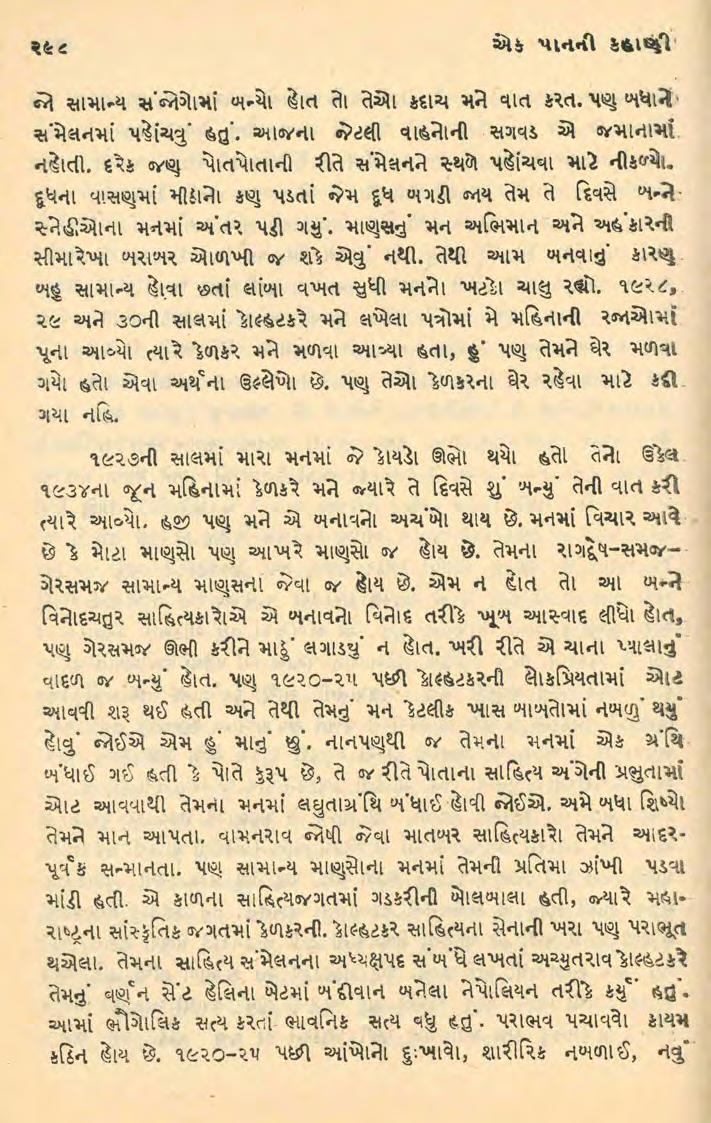 ૨૯૮ એક પાનની કહાણી
જો સામાન્ય સંજોગોમાં બન્યો હોત તો તેઓ કદાચ મને વાત કરત. પણ બધાને
સંમેલનમાં પહોંચવું હતું. આજના જેટલી વાહનોની સગવડ એ જમાનામાં
નહોતી. દરેક જણ પોતપોતાની રીતે સંમેલનને સ્થળે પહોંચવા માટે નીકળ્યો.
દૂધના વાસણમાં મીઠાનો કણ પડતાં જેમ દૂધ બગડી જાય તેમ તે દિવસે બન્ને
સ્નેહીઓના મનમાં અંતર પડી ગયું. માણસનું મન અભિમાન અને અહંકારની
સીમારેખા બરાબર ઓળખી જ શકે એવું નથી. તેથી આમ બનવાનું કારણ
બહુ સામાન્ય હોવા છતાં લાંબા વખત સુધી મનનો ખટકો ચાલુ રહ્યો. ૧૯૨૮,
૨૯ અને ૩૦ની સાલમાં કોલ્હટકરે મને લખેલા પત્રોમાં મે મહિનાની રજાઓમાં
પૂના આવ્યો ત્યારે કેળકર મને મળવા આવ્યા હતા, હું પણ તેમને ઘેર મળવા
ગયો હતો એવા અર્થના ઉલ્લેખો છે. પણ તેઓ કેળકરના ઘેર રહેવા માટે કદી
ગયા નહિ.
૧૯૨૭ની સાલમાં મારા મનમાં જે કોયડો ઊભો થયો હતો તેનો ઉકેલ
૧૯૩૪ના જૂન મહિનામાં કેળકરે મને જ્યારે તે દિવસે શું બન્યું તેની વાત કરી
ત્યારે આવ્યો. હજી પણ મને એ બનાવનો અચંબો થાય છે. મનમાં વિચાર આવે
છે કે મોટા માણસો પણ આખરે માણસો જ હોય છે. તેમના રાગદ્વેષ-સમજ-
ગેરસમજ સામાન્ય માણસના જેવા જ હોય છે. એમ ન હોત તો આ બન્ને
વિનોદચતુર સાહિત્યકારોએ એ બનાવનો વિનોદ તરીકે ખૂબ આસ્વાદ લીધો હોત,
પણ ગેરસમજ ઊભી કરીને માઠું લગાડ્યું ન હોત. ખરી રીતે એ ચાના પ્યાલાનું
વાદળ જ બન્યું હોત. પણ ૧૯૨૦-૨૫ પછી કોલ્હટકરની લોકપ્રિયતામાં ઓટ
આવવી શરૂ થઈ હતી અને તેથી તેમનું મન કેટલીક ખાસ બાબતોમાં નબળું થયું
હોવું જોઈએ એમ હું માનું છું. નાનપણથી જ તેમના મનમાં એક ગ્રંથિ
બંધાઈ ગઈ હતી કે પોતે કુરૂપ છે, તે જ રીતે પોતાના સાહિત્ય અંગેની પ્રભુતામાં
ઓટ આવવાથી તેમના મનમાં લઘુતાગ્રંથિ બંધાઈ હોવી જોઈએ. અમે બધા શિષ્યો
તેમને માન આપતા. વામનરાવ જોષી જેવા માતબર સાહિત્યકારો તેમને આદર-
પૂર્વક સન્માનતા. પણ સામાન્ય માણસોના મનમાં તેમની પ્રતિમા ઝાંખી પડવા
માંડી હતી. એ કાળના સાહિત્યજગતમાં ગડકરીની બોલબાલા હતી, જ્યારે મહા-
રાષ્ટ્રના સાંસ્કૃતિક જગતમાં કેળકરની. કોલ્હટકર સાહિત્યના સેનાની ખરા પણ પરાભૂત
થએલા. તેમના સાહિત્ય સંમેલનના અધ્યક્ષપદ સંબંધે લખતાં અચ્યુતરાવ કોલ્હટકરે
તેમનું વર્ણન સેંટ હેલિના બેટમાં બંદીવાન બનેલા નેપોલિયન તરીકે કર્યું હતું.
આમાં ભૌગોલિક સત્ય કરતાં ભાવનિક સત્ય વધુ હતું. પરાભવ પચાવવો કાયમ
કઠિન હોય છે. ૧૯૨૦-૨૫ પછી આંખોનો દુઃખાવો, શારીરિક નબળાઈ, નવું